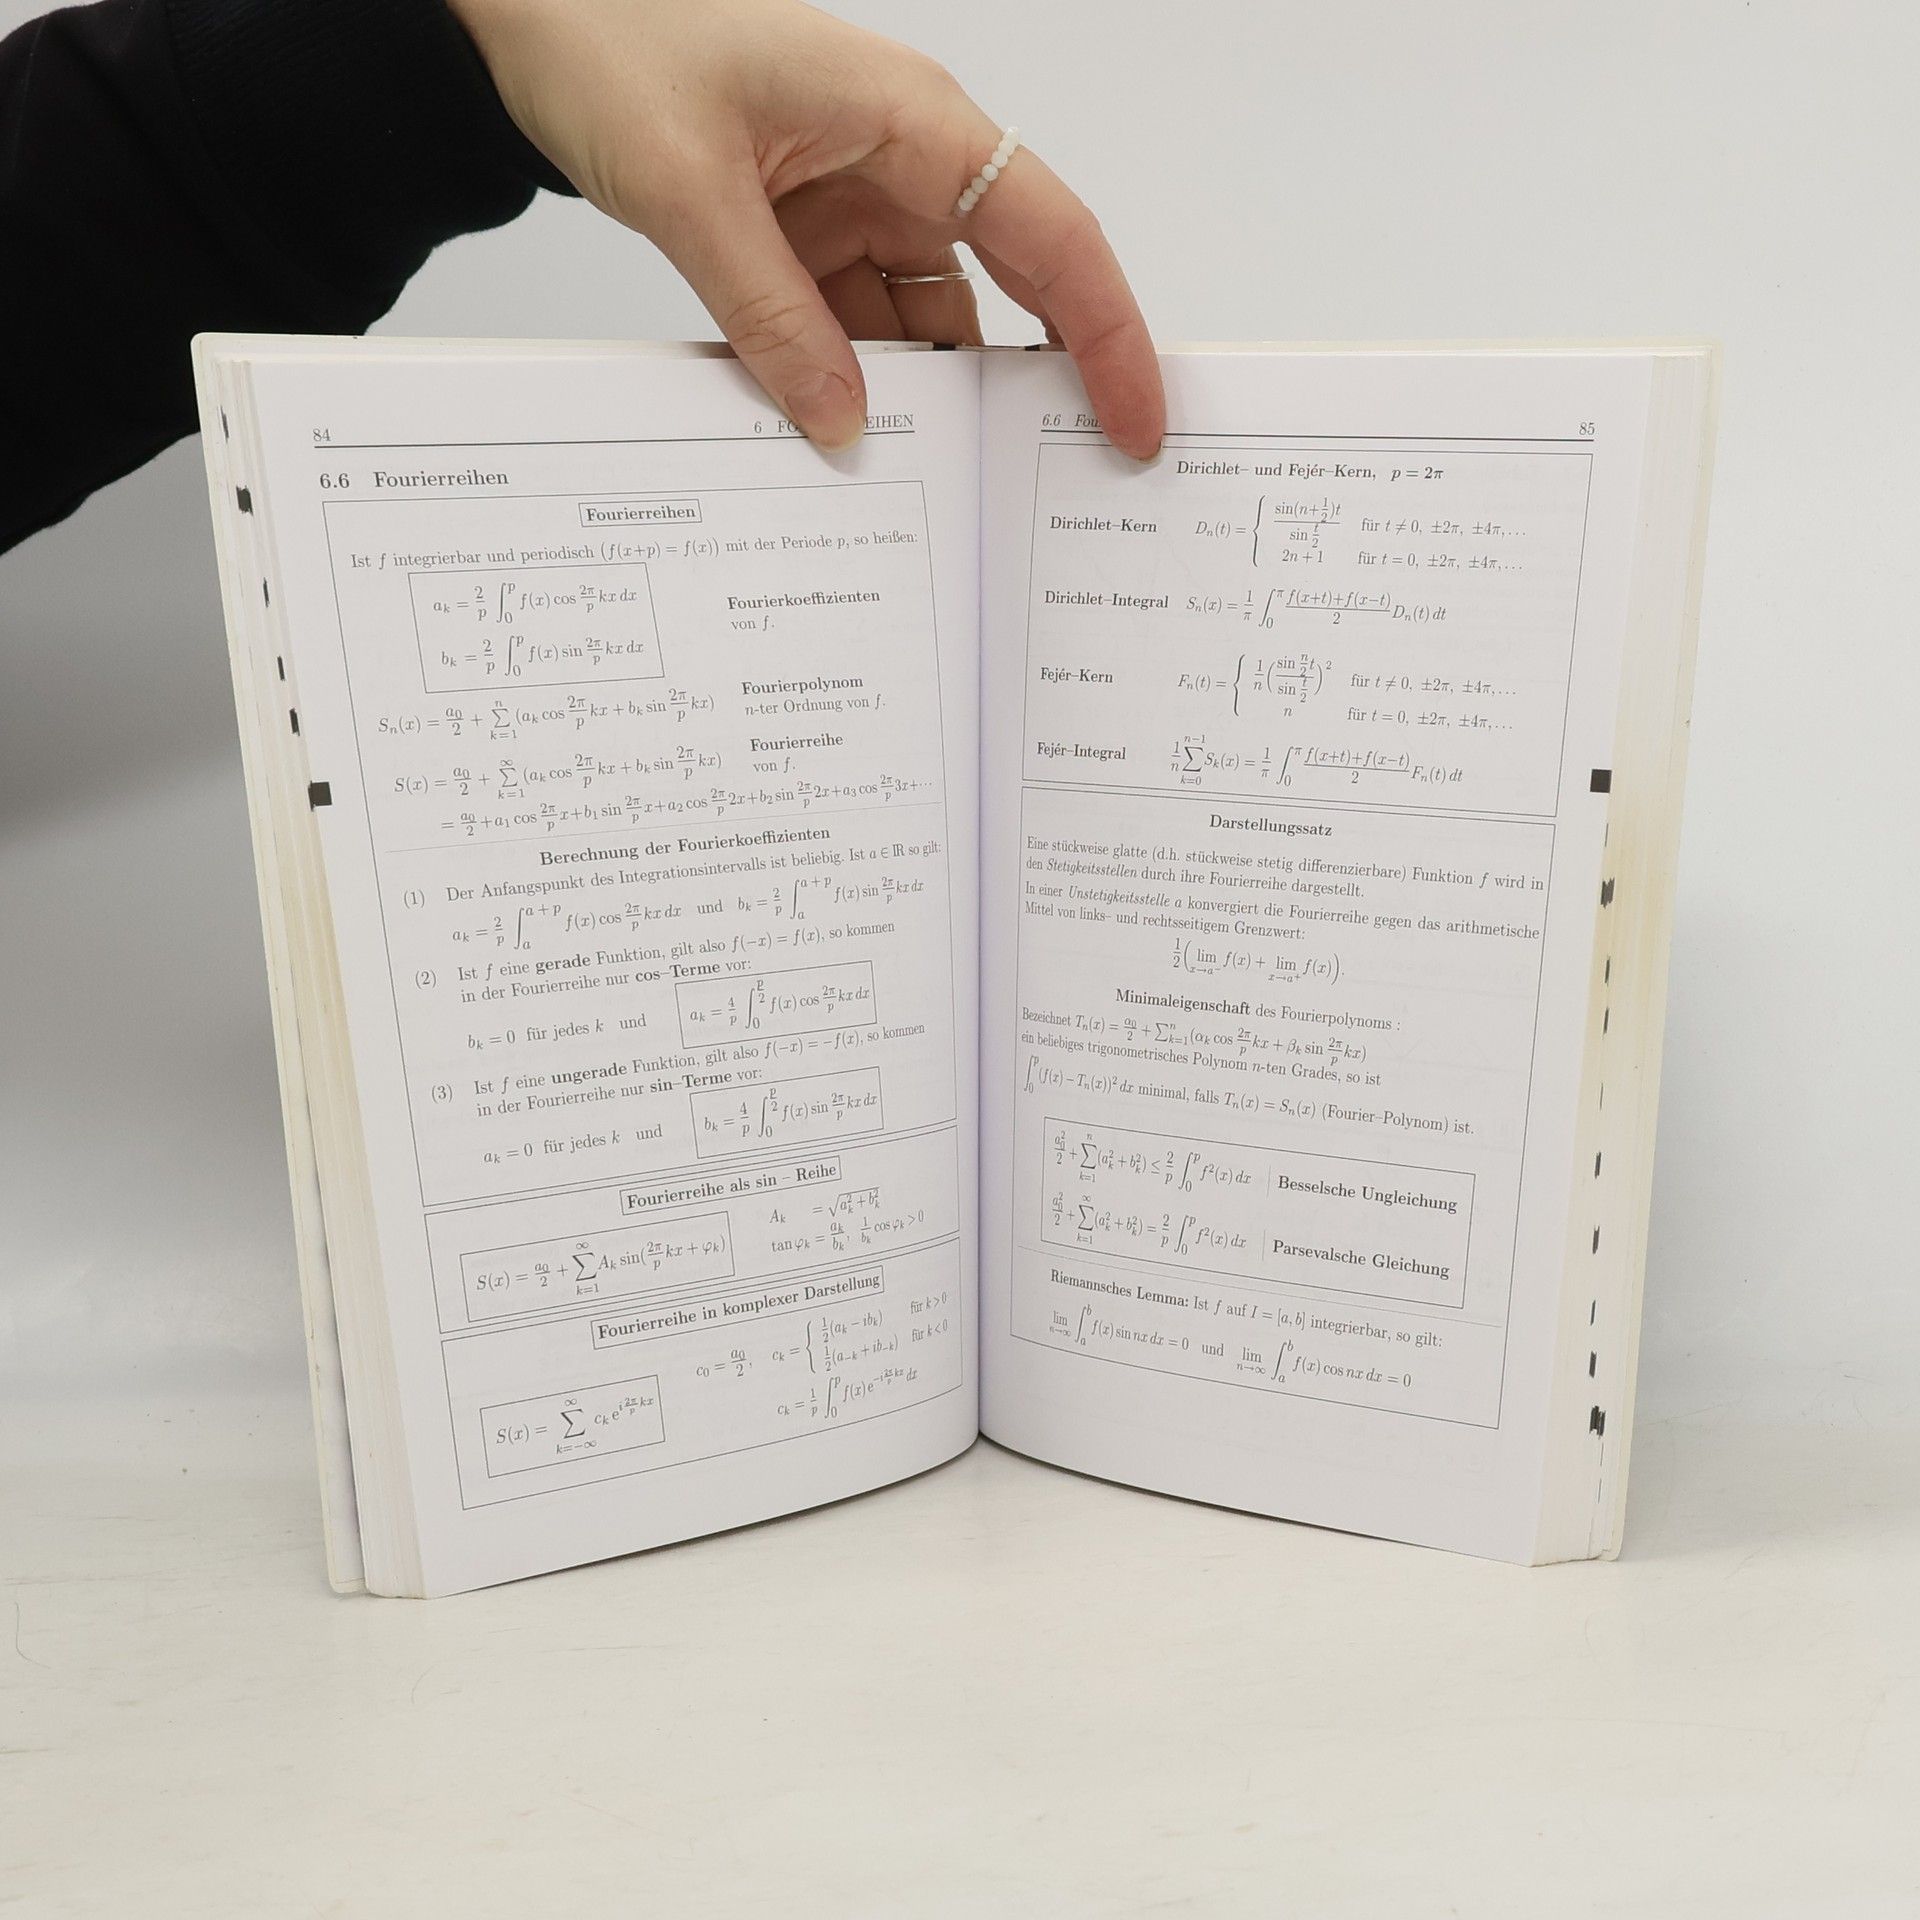 84
6 FO EIHEN
6.6 Fourierreihen
Fourierreihen
Ist f integrierbar und periodisch (f(x+p) = f(x)) mit der Periode p, so heißen:
a_k = 2/p ∫_0^p f(x) cos 2π/p kx dx
Fourierkoeffizienten
von f.
b_k = 2/p ∫_0^p f(x) sin 2π/p kx dx
S_n(x) = a_0/2 + ∑_{k=1}^n (a_k cos 2π/p kx + b_k sin 2π/p kx)
Fourierpolynom
n-ter Ordnung von f.
S(x) = a_0/2 + ∑_{k=1}^∞ (a_k cos 2π/p kx + b_k sin 2π/p kx)
Fourierreihe
von f.
= a_0/2 + a_1 cos 2π/p x + b_1 sin 2π/p x + a_2 cos 2π/p 2x + b_2 sin 2π/p 2x + a_3 cos 2π/p 3x + ···
Berechnung der Fourierkoeffizienten
(1) Der Anfangspunkt des Integrationsintervalls ist beliebig. Ist a ∈ ℝ so gilt:
a_k = 2/p ∫_a^{a+p} f(x) cos 2π/p kx dx und b_k = 2/p ∫_a^{a+p} f(x) sin 2π/p kx dx
(2) Ist f eine gerade Funktion, gilt also f(−x) = f(x), so kommen
in der Fourierreihe nur cos–Terme vor:
b_k = 0 für jedes k und a_k = 4/p ∫_0^{p/2} f(x) cos 2π/p kx dx
(3) Ist f eine ungerade Funktion, gilt also f(−x) = −f(x), so kommen
in der Fourierreihe nur sin–Terme vor:
a_k = 0 für jedes k und b_k = 4/p ∫_0^{p/2} f(x) sin 2π/p kx dx
Fourierreihe als sin – Reihe
S(x) = a_0/2 + ∑_{k=1}^∞ A_k sin(2π/p kx + φ_k)
A_k = √(a_k^2 + b_k^2)
tan φ_k = a_k/b_k, 1/b_k cos φ_k > 0
Fourierreihe in komplexer Darstellung
S(x) = ∑_{k=−∞}^∞ c_k e^{i 2π/p kx}
c_0 = a_0/2, c_k = { 1/2(a_k − ib_k) für k > 0
1/2(a_{−k} + ib_{−k}) für k < 0
c_k = 1/p ∫_0^p f(x) e^{−i 2π/p kx} dx
6.6 Fou
85
Dirichlet– und Fejér–Kern, p = 2π
Dirichlet–Kern D_n(t) = { sin(n+1/2)t / sin t/2 für t ≠ 0, ±2π, ±4π, ...
2n + 1 für t = 0, ±2π, ±4π, ...
Dirichlet–Integral S_n(x) = 1/π ∫_0^π (f(x+t)+f(x−t))/2 D_n(t) dt
Fejér–Kern F_n(t) = { 1/n (sin n/2 t / sin t/2)^2 für t ≠ 0, ±2π, ±4π, ...
n für t = 0, ±2π, ±4π, ...
Fejér–Integral 1/n ∑_{k=0}^{n−1} S_k(x) = 1/π ∫_0^π (f(x+t)+f(x−t))/2 F_n(t) dt
Darstellungssatz
Eine stückweise glatte (d.h. stückweise stetig differenzierbare) Funktion f wird in
den Stetigkeitsstellen durch ihre Fourierreihe dargestellt.
In einer Unstetigkeitsstelle a konvergiert die Fourierreihe gegen das arithmetische
Mittel von links– und rechtsseitigem Grenzwert:
1/2 ( lim_{x→a^−} f(x) + lim_{x→a^+} f(x)).
Minimaleigenschaft des Fourierpolynoms :
Bezeichnet T_n(x) = α_0/2 + ∑_{k=1}^n (α_k cos 2π/p kx + β_k sin 2π/p kx)
ein beliebiges trigonometrisches Polynom n-ten Grades, so ist
∫_0^p (f(x) − T_n(x))^2 dx minimal, falls T_n(x) = S_n(x) (Fourier–Polynom) ist.
a_0^2/2 + ∑_{k=1}^n (a_k^2 + b_k^2) ≤ 2/p ∫_0^p f^2(x) dx | Besselsche Ungleichung
a_0^2/2 + ∑_{k=1}^∞ (a_k^2 + b_k^2) = 2/p ∫_0^p f^2(x) dx | Parsevalsche Gleichung
Riemannsches Lemma: Ist f auf I = [a, b] integrierbar, so gilt:
lim_{n→∞} ∫_a^b f(x) sin nx dx = 0 und lim_{n→∞} ∫_a^b f(x) cos nx dx = 0